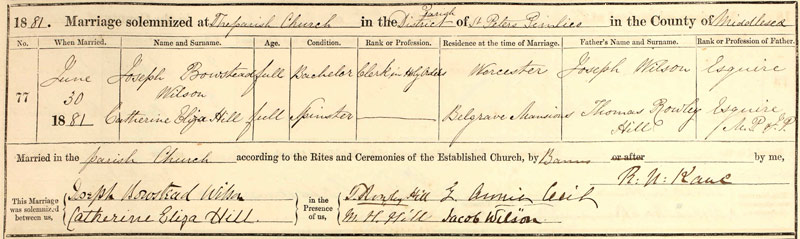 1881. Marriage solemnized at The parish Church in the District Parish of St Peters Pimlico in the County of Middlesex
No. When Married. Name and Surname. Age. Condition. Rank or Profession. Residence at the time of Marriage. Father's Name and Surname. Rank or Profession of Father.
77 June 30 1881 Joseph Bowstead Wilson full Bachelor Clerk in Holy Orders Worcester Joseph Wilson Esquire
Catherine Eliza Hill full Spinster Belgrave Mansions Thomas Rowley Hill Esquire M.P. & J.P.
Married in the parish Church according to the Rites and Ceremonies of the Established Church, by Banns or after by me,
R. N. Kane
This Marriage was solemnized between us, Joseph Bowstead Wilson in the Presence of us, T. Rowley Hill Cecil
Catherine Eliza Hill. M. H. Hill Jacob Wilson